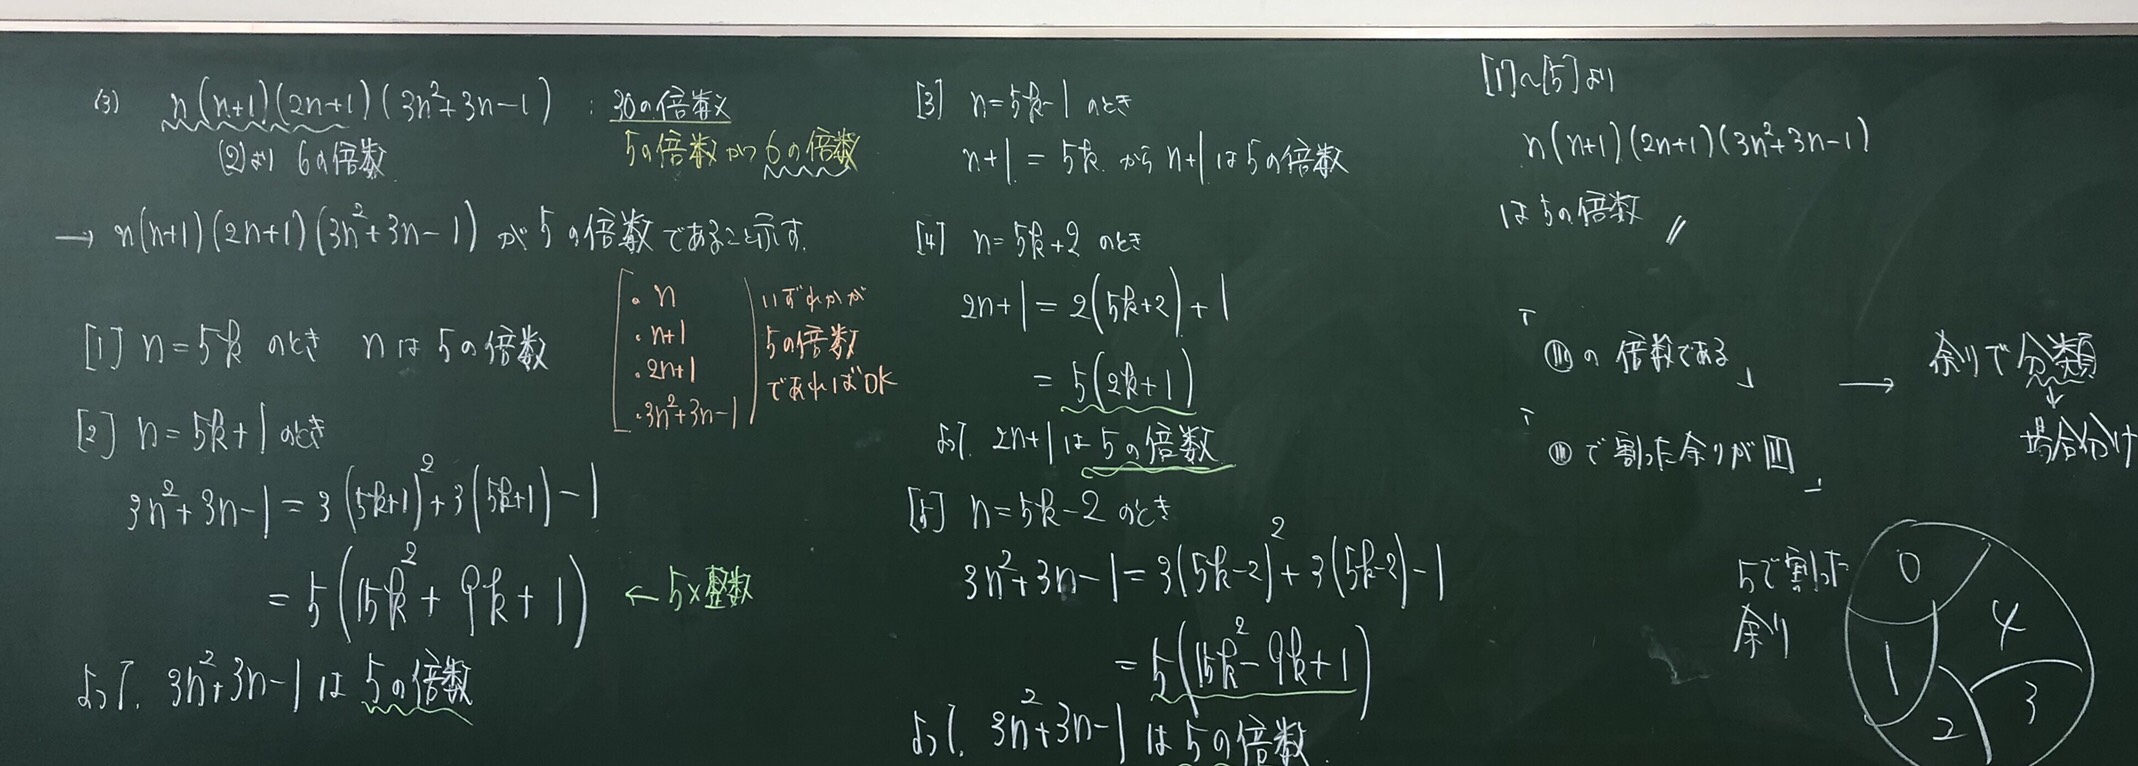 (3) n(n+1)(2n+1)(3n²+3n-1) : 30の倍数
(2)より 6の倍数
5の倍数かつ6の倍数
→ n(n+1)(2n+1)(3n²+3n-1) が 5の倍数であること示す.
・n
・n+1
・2n+1
・3n²+3n-1
いずれかが
5の倍数
であればOK
[1] n=5k のとき nは5の倍数
[2] n=5k+1 のとき
3n²+3n-1=3(5k+1)²+3(5k+1)-1
=5(15k²+9k+1) ←5×整数
よって, 3n²+3n-1は5の倍数
[3] n=5k-1 のとき
n+1=5k から n+1は5の倍数
[4] n=5k+2 のとき
2n+1=2(5k+2)+1
=5(2k+1)
よって, 2n+1は5の倍数
[5] n=5k-2 のとき
3n²+3n-1=3(5k-2)²+3(5k-2)-1
=5(15k²-9k+1)
よって, 3n²+3n-1は5の倍数
[1]~[5]より
n(n+1)(2n+1)(3n²+3n-1)
は5の倍数 //
「
の倍数である」
→ 余りで分類
↓
場合分け
「
で割った余りが
」
5で割った
余り
0
1
2
3
4